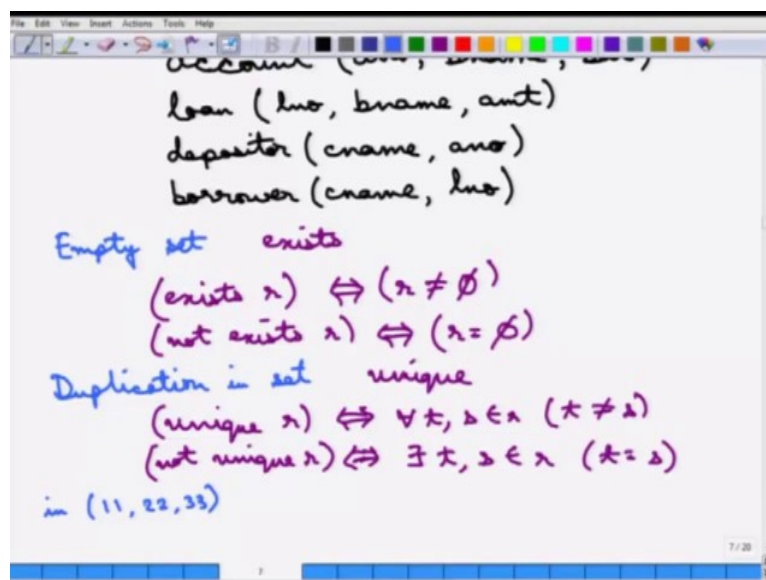 File Edit View Insert Actions Tools Help
account (ano, bname, bal)
loan (lno, bname, amt)
depositor (cname, ano)
borrower (cname, lno)
Empty set exists
(exists r) ⇔ (r ≠ ∅)
(not exists r) ⇔ (r = ∅)
Duplication in set unique
(unique r) ⇔ ∀ t, s ∈ r (t ≠ s)
(not unique r) ⇔ ∃ t, s ∈ r (t = s)
in (11, 22, 33)
7/20
7